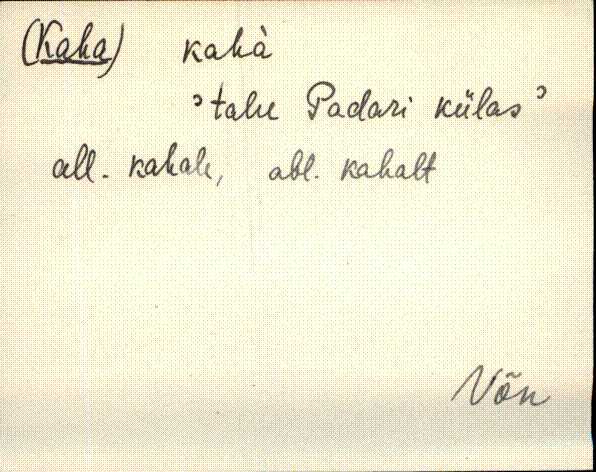 (Kaha) kahà
’talu Padari külas’
all. kahale, abl. kahalt
Võn